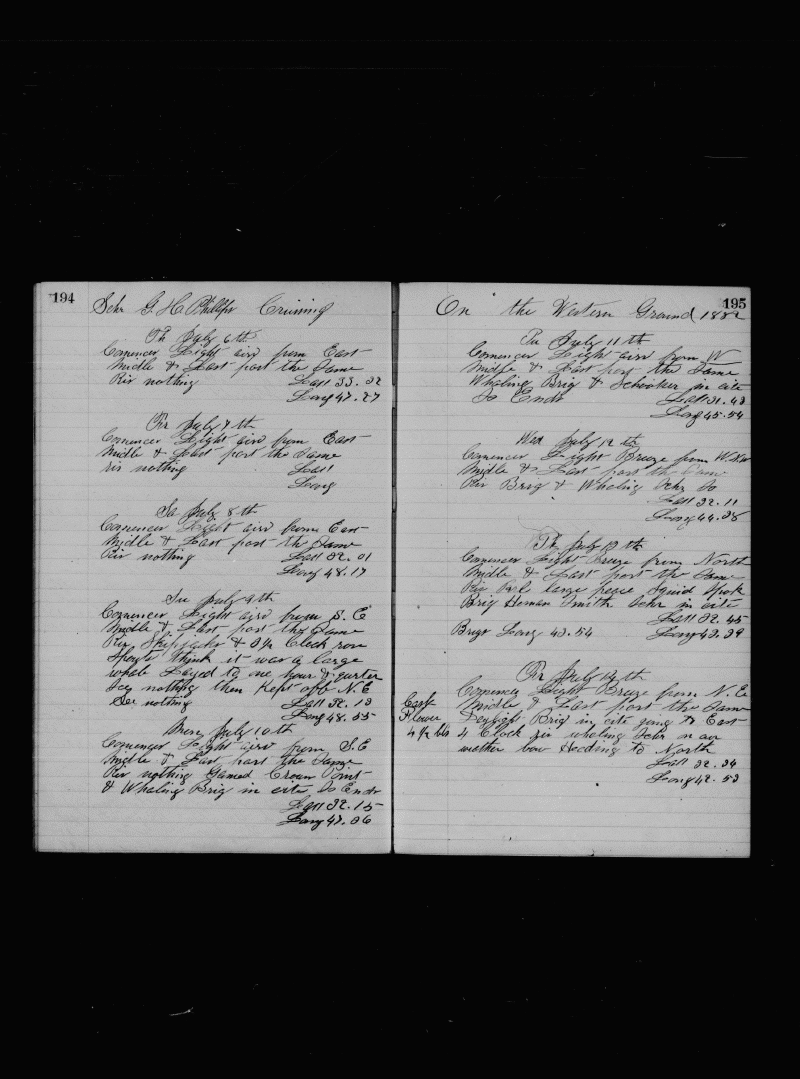 194
Schr G. H. Phillips Cruising
Th July 6th
Comences Light airs from East
Middle & Last part the Same
Rir nothing Latt 33.32
Long 47.27
Fri July 7th
Comences Light airs from East
Middle & Last part the Same
rir nothing Latt
Long
Sa July 8th
Comences Light airs from East
Middle & Last part the Same
Rir nothing Latt 32.01
Long 48.17
Su July 9th
Comences Light airs from S. E
Middle & Last part the Same
Rir Skipjacks & Clock
Spouts think it was a large
whale Layed to one hour & quarter
See nothing then Kept off N. E
See nothing Latt 32.13
Long 48.55
Mon July 10th
Comences Light airs from S. E
Middle & Last part the Same
Rir nothing Gamed Crown Point
& Whaling Brig in cite So Ends
Latt 32.15
Long 47.06
195
On the Western Ground 1882
Tu July 11th
Comences Light airs from W
Middle & Last part the Same
Whaling Brig & Schooner in cite
So Ends Latt 31.43
Long 45.54
Wed July 12th
Comences Light Breeze from
Middle & Last part the Same
Rir Brig & Whaling Schr So
Latt 32.11
Long 44.38
Th July 13th
Comences Light Breeze from North
Middle & Last part the Same
Rir large peace Squid Spok
Brig Heman Smith Schr in cite
Latt 32.45
Brigs Long 43.54 Long 43.39
Fri July 14th
Comences Light Breeze from N. E
Cask Middle & Last part the Same
Flower Daylight Brig in cite going to East
4 Clock rir whaling Schr on our
weather bow Heading to North
Latt 32.34
Long 42.53